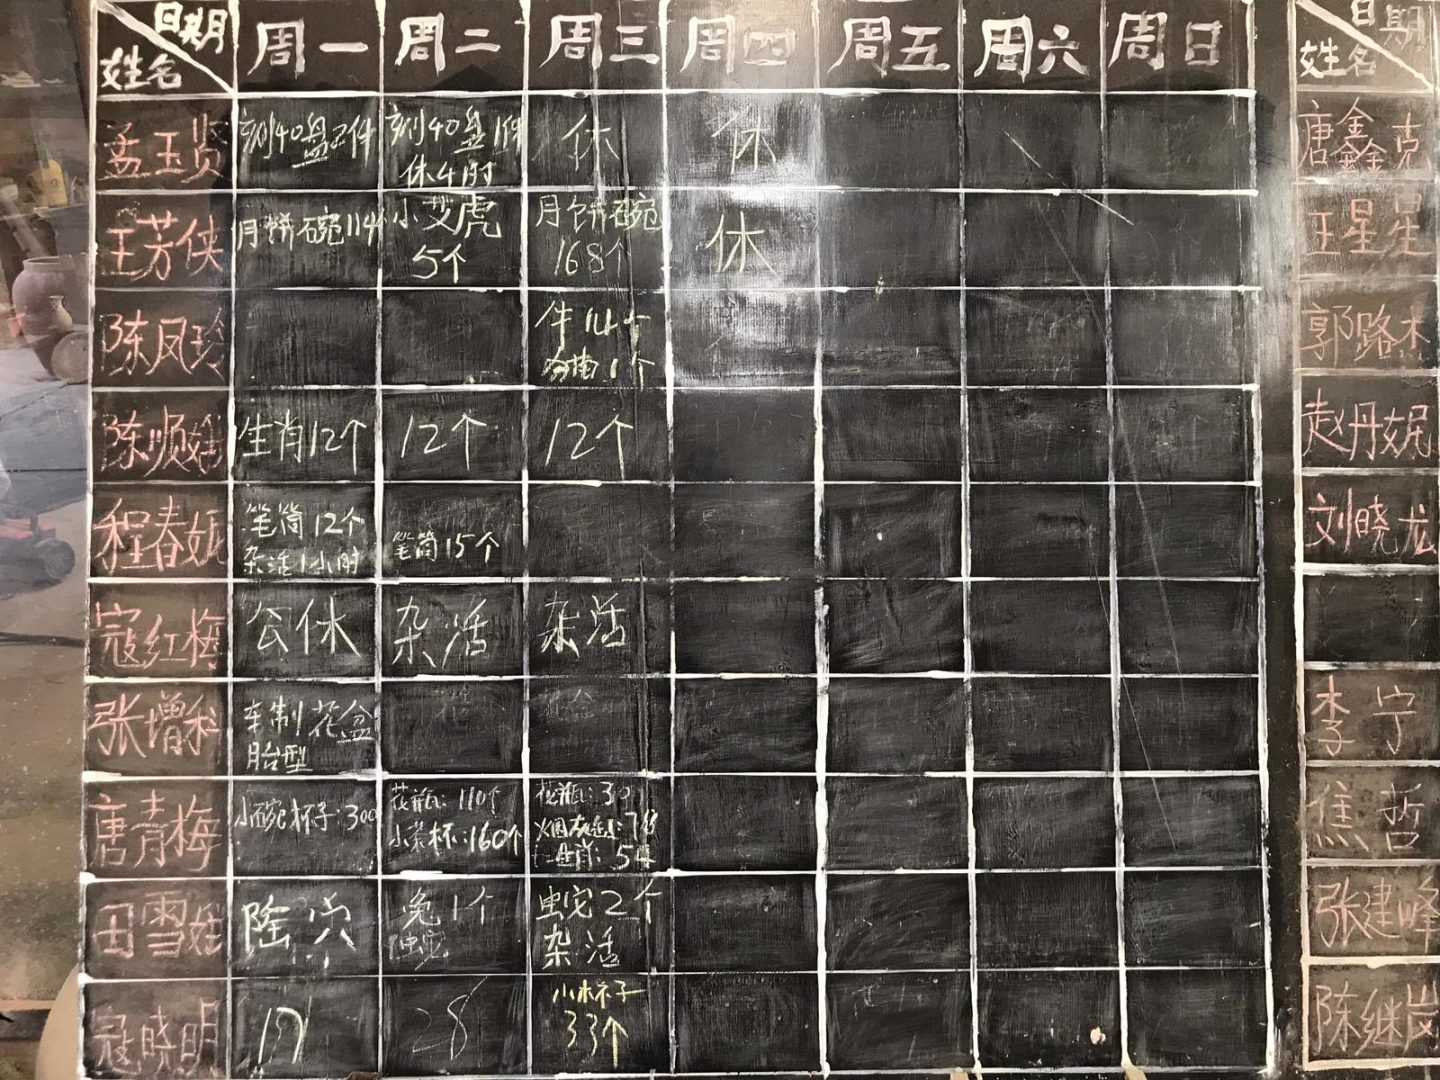 日期 姓名 周一 周二 周三 周四 周五 周六 周日
孟玉贤 刻40盘2件 刻40盘1件 休 休
休4时
王芳侠 月饼碗114 小艾虎 月饼碗 休
5个 168个
陈凤玲 牛14个
1个
陈顺娥 生肖12个 12个 12个
程春妮 笔筒12个 笔筒15个
杂活1小时
寇红梅 公休 杂活 杂活
张增科 车制花盆 花 花盆
胎型
唐青梅 小碗杯子:300 花瓶:110个 花瓶:30
小茶杯:160个
生肖:54
田雪娃 陶穴 兔1个 蛇2个
蛇 杂活
寇晓明 28 小杯子
33个
日期 姓名
唐鑫鑫克
王星星
郭路杰
赵丹妮
刘晓龙
李宁
焦哲
张建峰
陈继岚